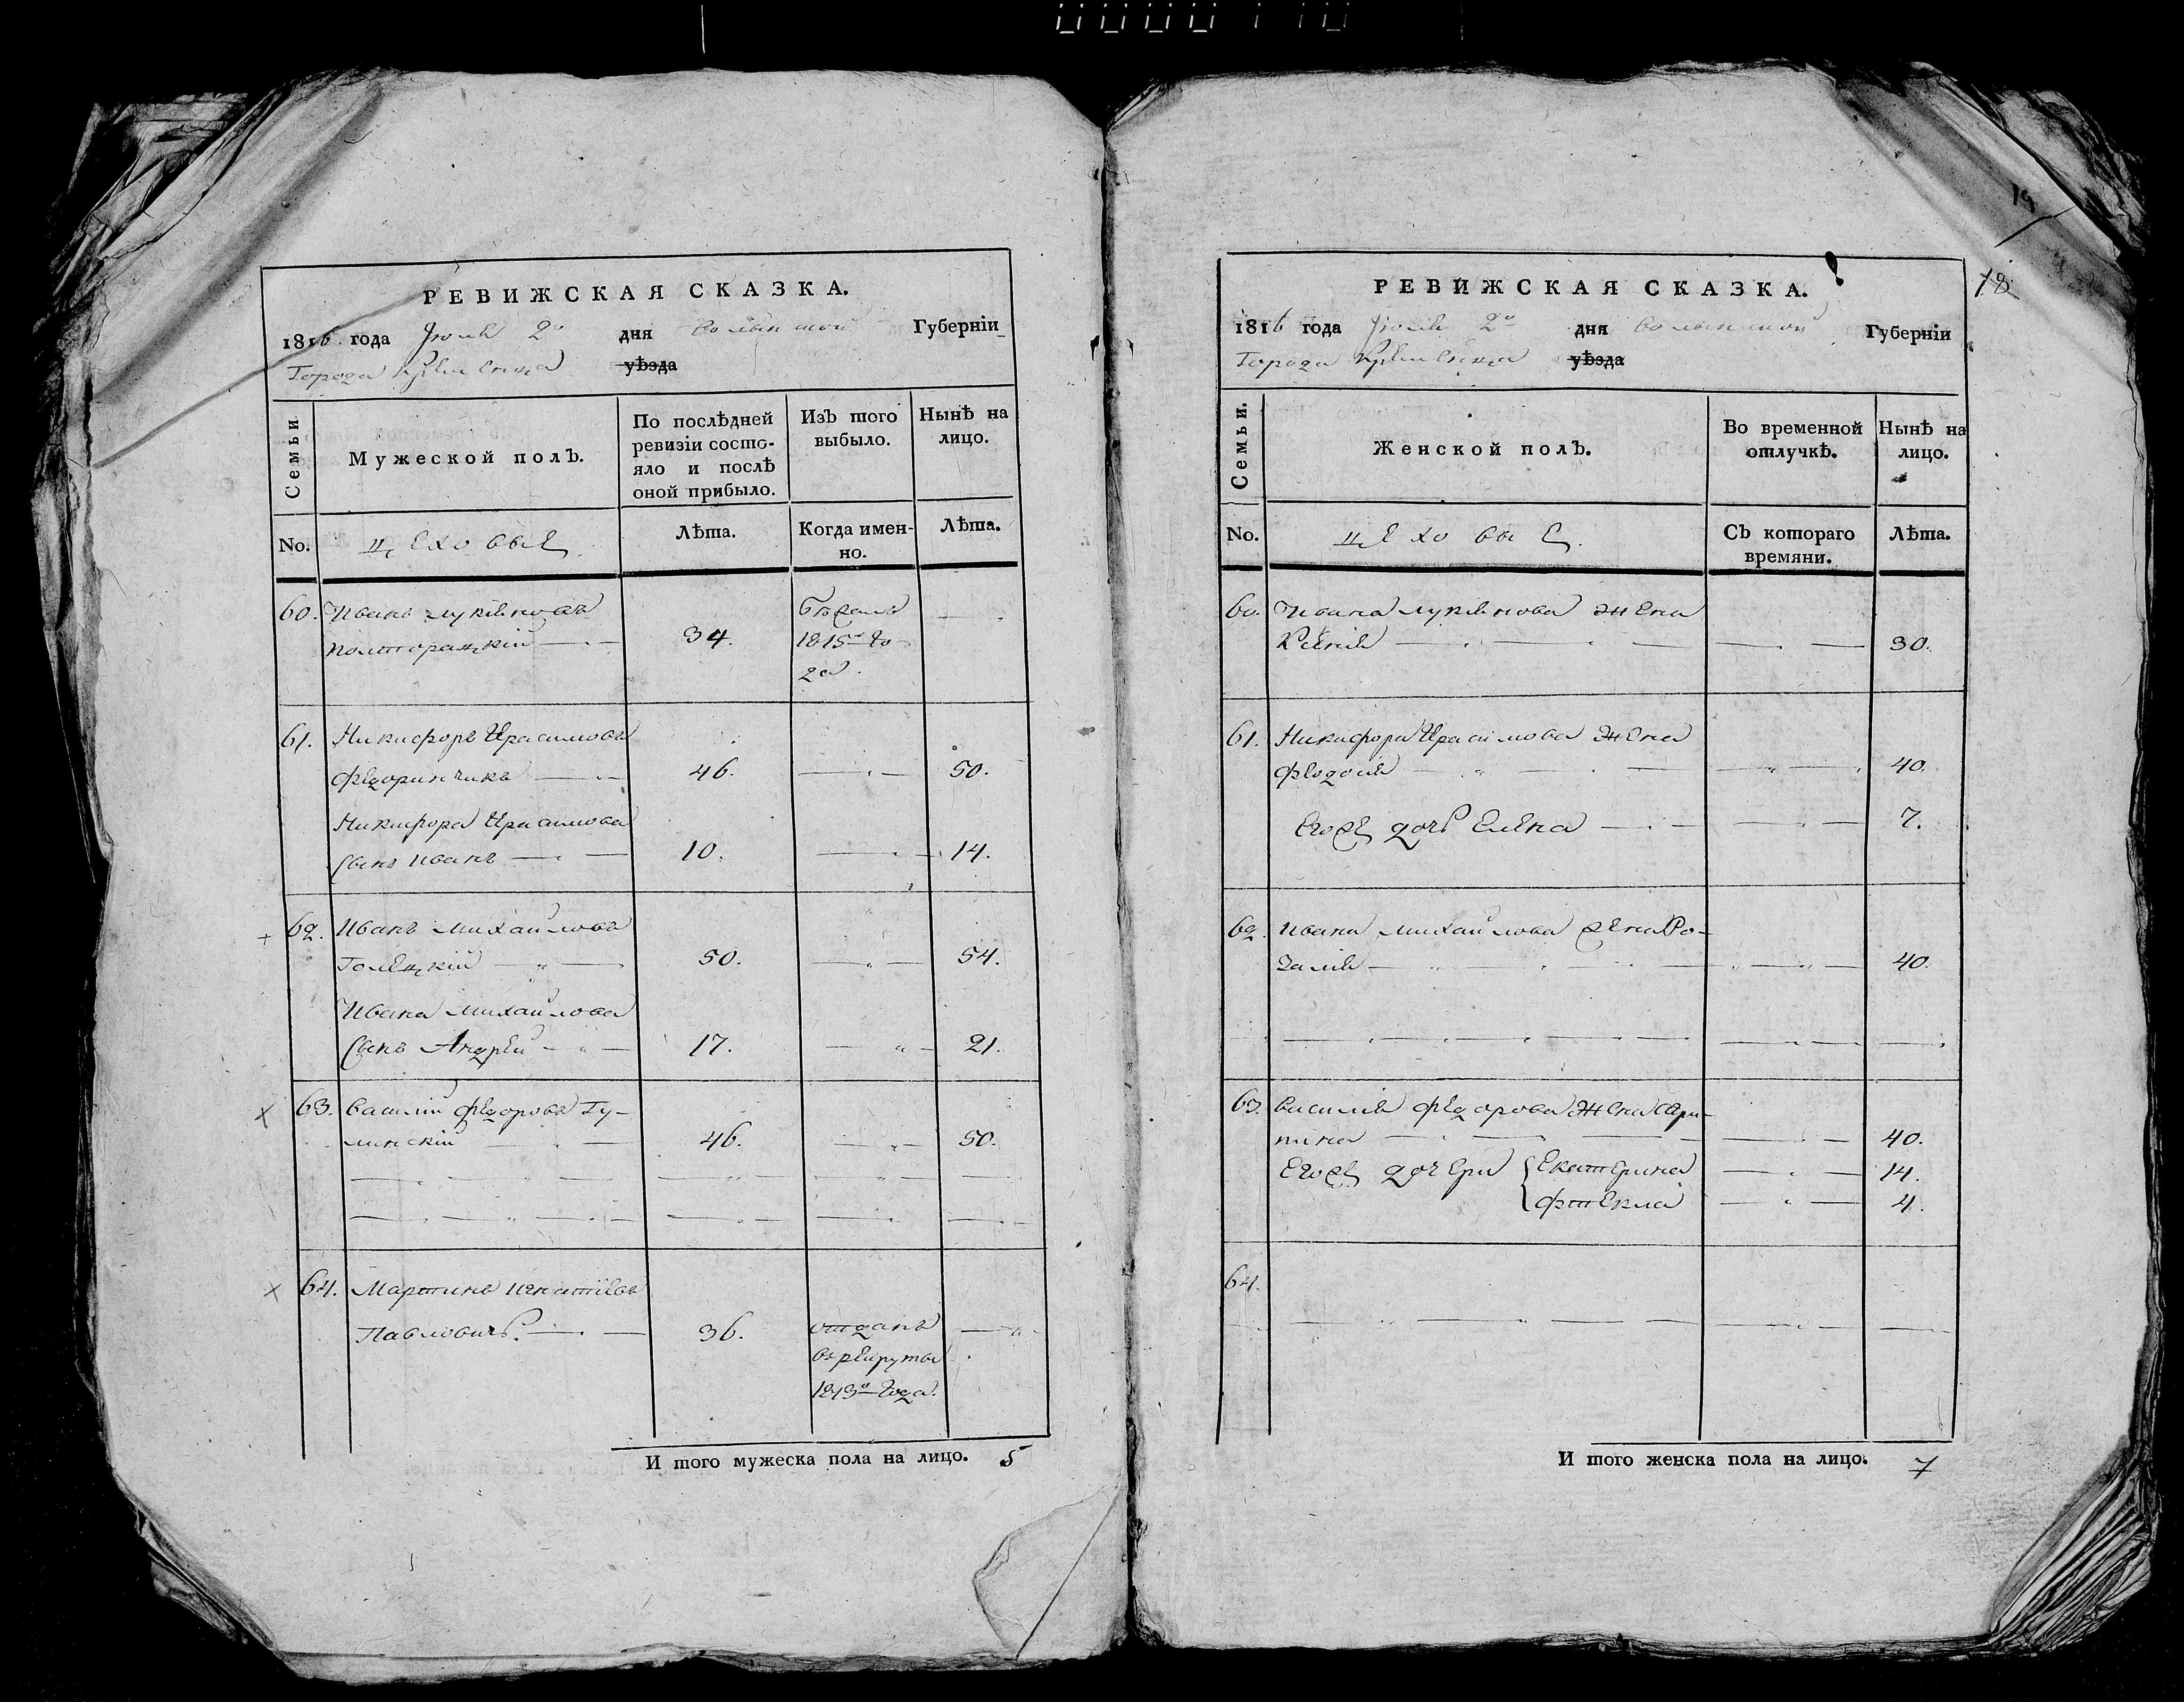 19
18
РЕВИЖСКАЯ СКАЗКА.
1816 года Июля 2го дня Волынской Губерніи
Города Кременца уѣзда
Семьи
Мужеской полъ.
По послѣдней ревизіи состо-
яло и послѣ
оной прибыло.
Изъ того
выбыло.
Нынѣ на
лицо.
No.
цеховые
Лѣта.
Когда имен-
но.
Лѣта.
60. Иванъ Лукяновъ
Полторацкій 34.
Бѣжалъ
1815го го
да.
61. Никифоръ Ирасимовъ
Федоринчикъ 46. 50.
Никифора Ирасимова
Сынъ Иванъ 10. 14.
62. Иванъ Михайловъ
Голецкій 50. 54.
Ивана Михайлова
Сынъ Андрей 17. 21.
63. Василій Федоровъ Гу-
линскій 46. 50.
64. Мартинъ Игнатіевъ
Павловичъ. 36.
отданъ
въ рекруты
1813го года.
И того мужеска пола на лицо. 5
РЕВИЖСКАЯ СКАЗКА.
1816 года Июля 2го дня Волынской Губерніи
Города Кременца уѣзда
Семьи.
Женской полъ.
Во временной
отлучкѣ.
Нынѣ на
лицо.
No.
цеховые.
Съ котораго
времяни.
Лѣта.
60. Ивана Лукянова жена
Ксенія 30.
61. Никифора Ирасимова жена
Феодосія 40.
Егоже дочь Елена 7.
62. Ивана Михайлова жена Ро-
залія 40.
63. Василія Федорова жена
40.
Егоже дочери Екатерина 14.
Фтекла 4.
64.
И того женска пола на лицо. 7